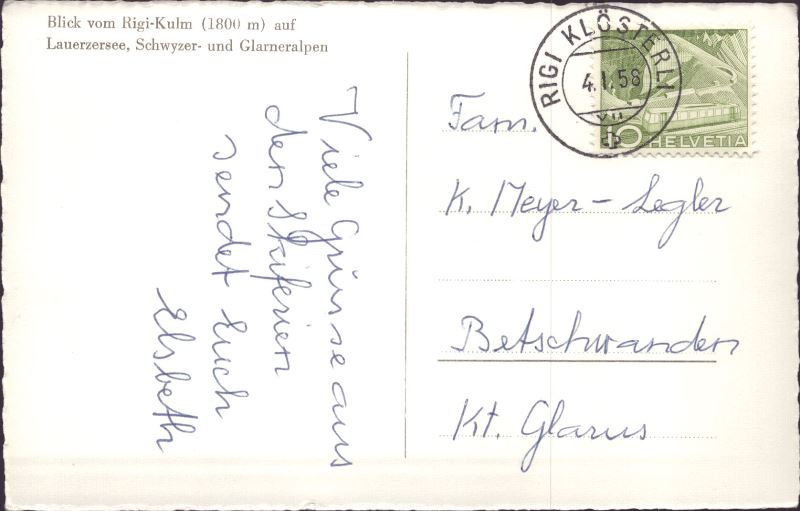 Blick vom Rigi-Kulm (1800 m) auf
Lauerzersee, Schwyzer- und Glarneralpen
Viele Grüsse aus
den Skiferien
sendet Euch
Elsbeth
RIGI KLÖSTERLI
4.1.58
10 HELVETIA
Fam.
K. Meyer-Legler
Betschwanden
Kt. Glarus